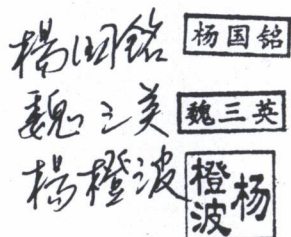 楊国铭 杨国铭
魏三英 魏三英
楊橙波 杨橙波